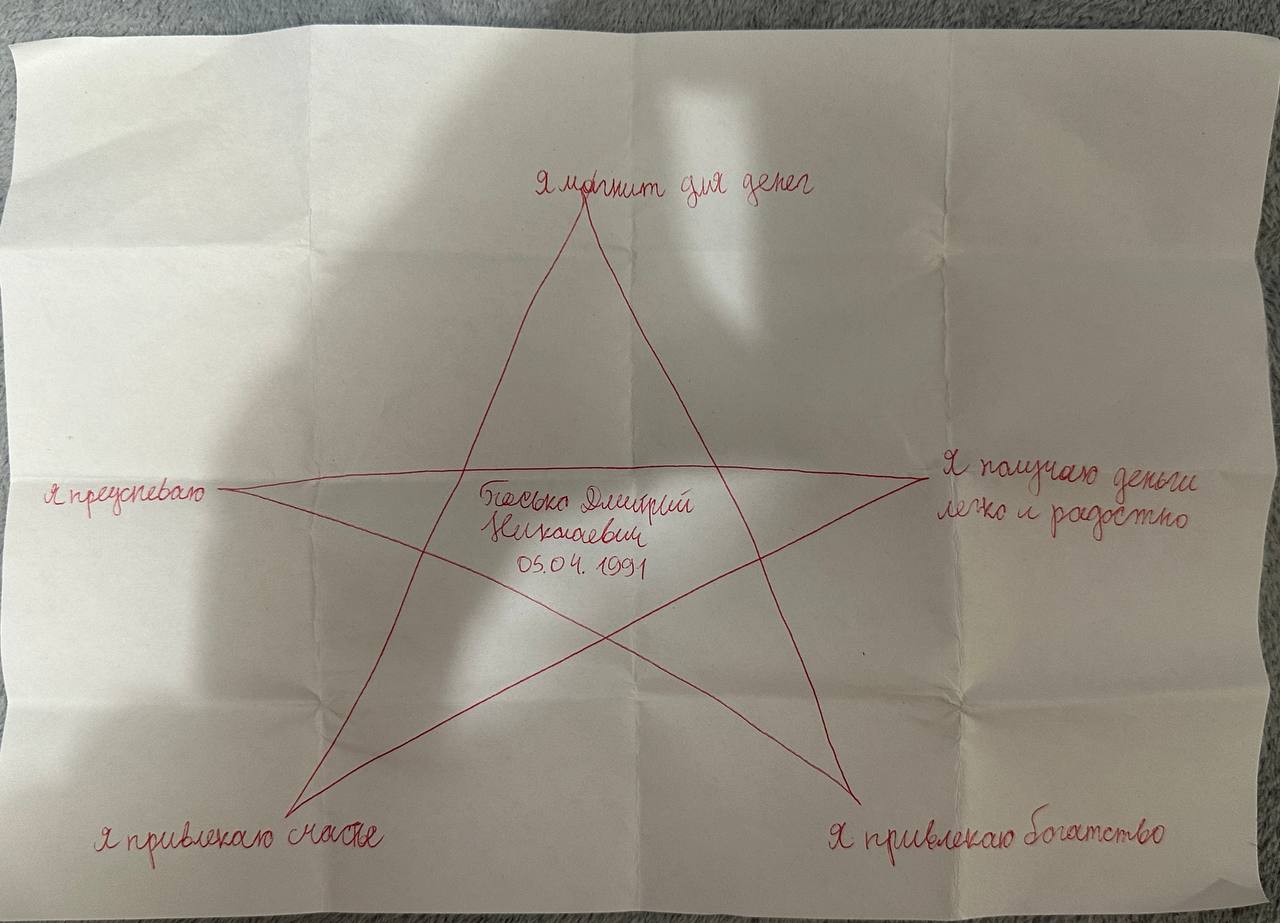 Я магнит для денег
Я преуспеваю
Я получаю деньги
легко и радостно
Дмитрий
Николаевич
05.04.1991
Я привлекаю счастье
Я привлекаю богатство